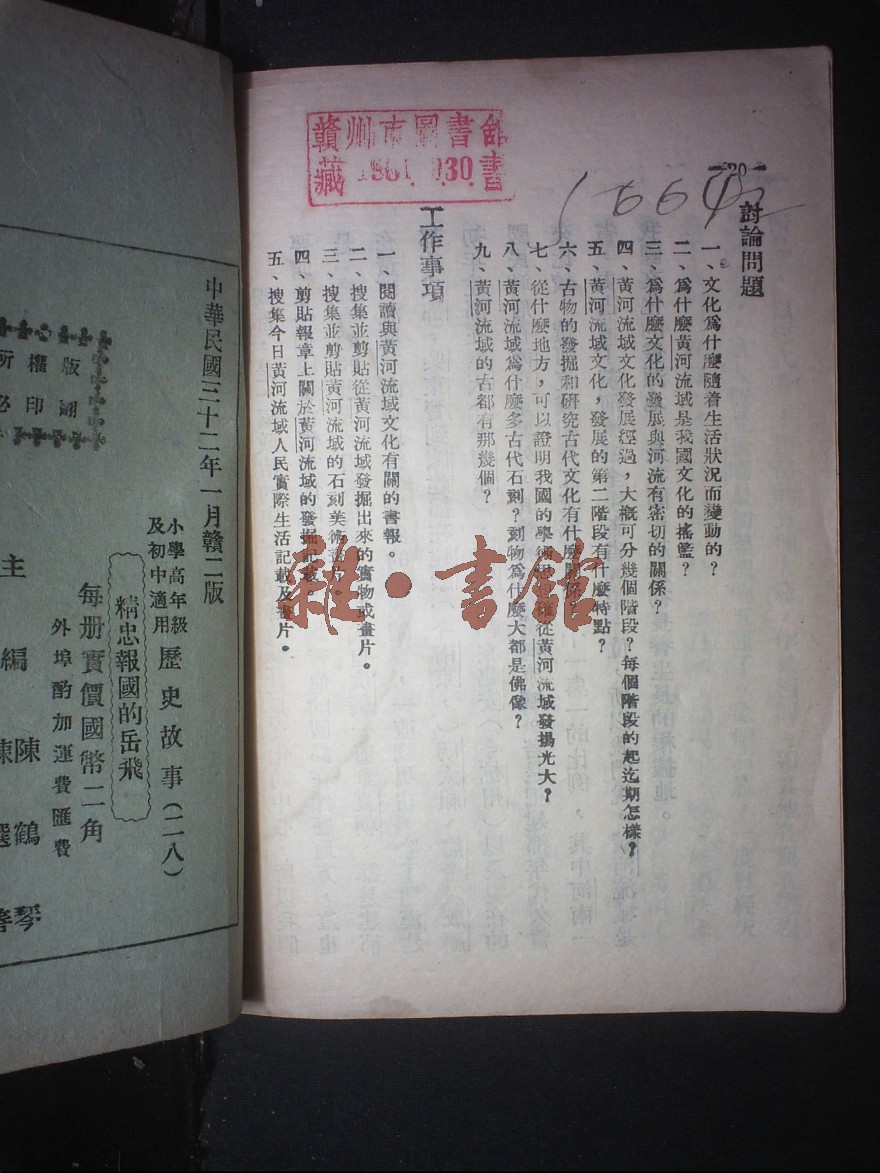 贛州市圖書館
藏 書
—20—
討論問題
一、文化爲什麼隨着生活狀況而變動的？
二、爲什麼黃河流域是我國文化的搖籃？
三、爲什麼文化的發展與河流有密切的關係？
四、黃河流域文化發展經過，大概可分幾個階段？每個階段的起迄期怎樣？
五、黃河流域文化，發展的第二階段有什麼特點？
六、古物的發掘和研究古代文化有什麼關係？
七、從什麼地方，可以證明我國的學術 從黃河流域發揚光大？
八、黃河流域爲什麼多古代石刻？刻物爲什麼大都是佛像？
九、黃河流域的古都有那幾個？
工作事項
一、閱讀與黃河流域文化有關的書報。
二、搜集並剪貼從黃河流域發掘出來的實物或畫片。
三、搜集並剪貼黃河流域的石刻美術畫片。
四、剪貼報章上關於黃河流域的發掘記載。
五、搜集今日黃河流域人民實際生活記載及畫片。
雜·書館
中華民國三十二年一月贛二版
小學高年級
及初中適用
歷史故事（二八）
精忠報國的岳飛
每册實價國幣二角
外埠酌加運費匯費
版權所
翻印必
主編
陳鶴琴
陳選善